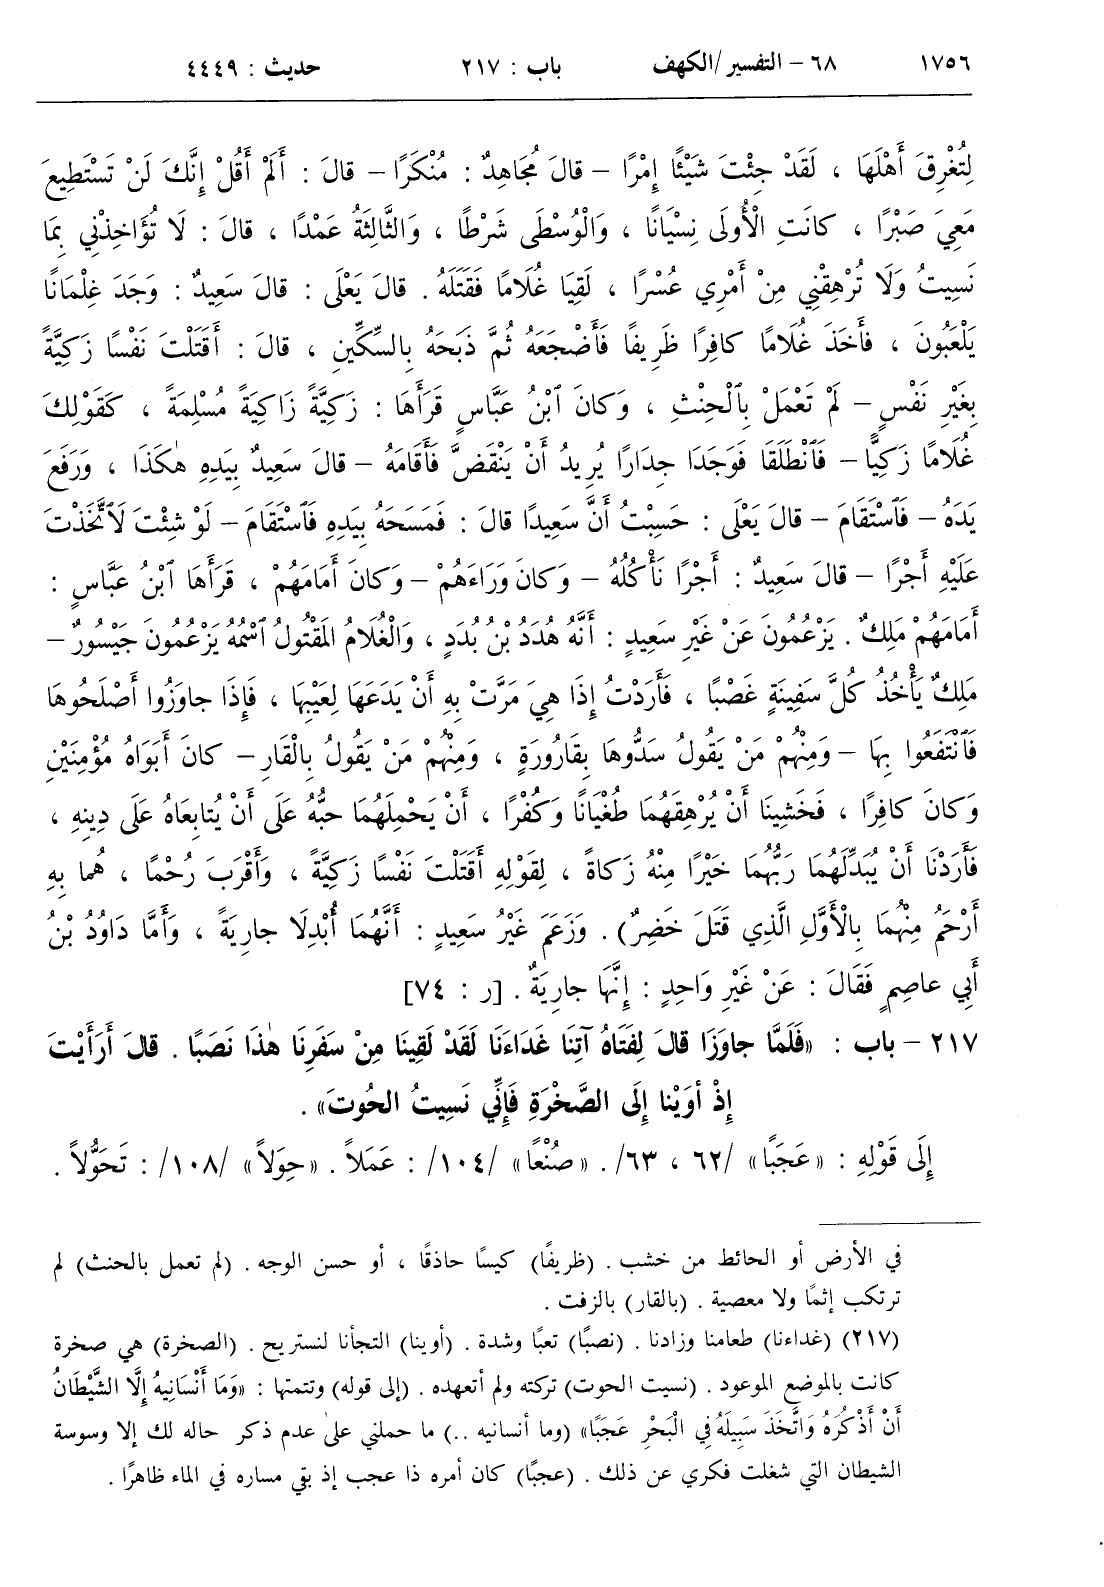 ١٧٥٦ ٦٨ – التفسير/الكهف باب : ٢١٧ حديث : ٤٤٤٩
لِتُغْرِقَ أَهْلَهَا ، لَقَدْ جِئْتَ شَيْئًا إِمْرًا – قالَ مُجَاهِدٌ : مُنْكَرًا – قالَ : أَلَمْ أَقُلْ إِنَّكَ لَنْ تَسْتَطِيعَ
مَعِيَ صَبْرًا ، كانَتِ الْأُولَى نِسْيَانًا ، وَالْوُسْطَى شَرْطًا ، وَالثَّالِثَةُ عَمْدًا ، قالَ : لَا تُؤَاخِذْنِي بِمَا
نَسِيتُ وَلَا تُرْهِقْنِي مِنْ أَمْرِي عُسْرًا ، لَقِيَا غُلَامًا فَقَتَلَهُ . قالَ يَعْلَى : قالَ سَعِيدٌ : وَجَدَ غِلْمَانًا
يَلْعَبُونَ ، فأَخَذَ غُلَامًا كافِرًا ظَرِيفًا فَأَضْجَعَهُ ثُمَّ ذَبَحَهُ بِالسِّكِّينِ ، قالَ : أَقَتَلْتَ نَفْسًا زَكِيَّةً
بِغَيْرِ نَفْسٍ – لَمْ تَعْمَلْ بِالْحِنْثِ ، وَكانَ ٱبْنُ عَبَّاسٍ قَرَأَهَا : زَكِيَّةً زَاكِيَةً مُسْلِمَةً ، كَقَوْلِكَ
غُلَامًا زَكِيًّا – فَٱنْطَلَقَا فَوَجَدَا جِدَارًا يُرِيدُ أَنْ يَنْقَضَّ فَأَقَامَهُ – قالَ سَعِيدٌ بِيَدِهِ هٰكَذَا ، وَرَفَعَ
يَدَهُ – فَٱسْتَقَامَ – قالَ يَعْلَى : حَسِبْتُ أَنَّ سَعِيدًا قالَ : فَمَسَحَهُ بِيَدِهِ فَٱسْتَقَامَ – لَوْ شِئْتَ لَاتَّخَذْتَ
عَلَيْهِ أَجْرًا – قالَ سَعِيدٌ : أَجْرًا نَأْكُلُهُ – وَكانَ وَرَاءَهُمْ – وَكانَ أَمَامَهُمْ ، قَرَأَهَا ٱبْنُ عَبَّاسٍ :
أَمَامَهُمْ مَلِكٌ . يَزْعُمُونَ عَنْ غَيْرِ سَعِيدٍ : أَنَّهُ هُدَدُ بْنُ بُدَدٍ ، وَالْغُلَامُ المَقْتُولُ ٱسْمُهُ يَزْعُمُونَ جَيْسُورٌ –
مَلِكٌ يَأْخُذُ كُلَّ سَفِينَةٍ غَصْبًا ، فَأَرَدْتُ إِذَا هِيَ مَرَّتْ بِهِ أَنْ يَدَعَهَا لِعَيْبِهَا ، فَإِذَا جاوَزُوا أَصْلَحُوهَا
فَٱنْتَفَعُوا بِهَا – وَمِنْهُمْ مَنْ يَقُولُ سَدُّوهَا بِقَارُورَةٍ ، وَمِنْهُمْ مَنْ يَقُولُ بِالْقَارِ – كانَ أَبَوَاهُ مُؤْمِنَيْنِ
وَكانَ كافِرًا ، فَخَشِينَا أَنْ يُرْهِقَهُمَا طُغْيَانًا وَكُفْرًا ، أَنْ يَحْمِلَهُمَا حُبُّهُ عَلَى أَنْ يُتابِعَاهُ عَلَى دِينِهِ ،
فَأَرَدْنَا أَنْ يُبَدِّلَهُمَا رَبُّهُمَا خَيْرًا مِنْهُ زَكاةً ، لِقَوْلِهِ أَقَتَلْتَ نَفْسًا زَكِيَّةً ، وَأَقْرَبَ رُحْمًا ، هُما بِهِ
أَرْحَمُ مِنْهُمَا بِالْأَوَّلِ الَّذِي قَتَلَ خَضِرٌ) . وَزَعَمَ غَيْرُ سَعِيدٍ : أَنَّهُمَا أُبْدِلَا جارِيَةً ، وَأَمَّا دَاوُدُ بْنُ
أَبِي عاصِمٍ فَقَالَ : عَنْ غَيْرِ وَاحِدٍ : إِنَّهَا جارِيَةٌ . [ر : ٧٤]
٢١٧ – باب : «فَلَمَّا جاوَزَا قالَ لِفَتَاهُ آتِنَا غَدَاءَنَا لَقَدْ لَقِينَا مِنْ سَفَرِنَا هٰذَا نَصَبًا . قالَ أَرَأَيْتَ
إِذْ أوَيْنا إِلَى الصَّخْرَةِ فَإِنِّي نَسِيتُ الحُوتَ» .
إِلَى قَوْلِهِ : «عَجَبًا» /٦٢ ، ٦٣/. «صُنْعًا» /١٠٤/ : عَمَلاً . «حِوَلاً» /١٠٨/ : تَحَوُّلاً .
في الأرض أو الحائط من خشب . (ظريفًا) كيسًا حاذقًا ، أو حسن الوجه . (لم تعمل بالحنث) لم
ترتكب إثمًا ولا معصية . (بالقار) بالزفت .
(٢١٧) (غداءنا) طعامنا وزادنا . (نصبًا) تعبًا وشدة . (أوينا) التجأنا لنستريح . (الصخرة) هي صخرة
كانت بالموضع الموعود . (نسيت الحوت) تركته ولم أتعهده . (إلى قوله) وتتمتها : «وَمَا أَنْسَانِيهُ إِلَّا الشَّيْطَانُ
أَنْ أَذْكُرَهُ وَاتَّخَذَ سَبِيلَهُ فِي الْبَحْرِ عَجَبًا» (وما أنسانيه ..) ما حملني على عدم ذكر حاله لك إلا وسوسة
الشيطان التي شغلت فكري عن ذلك . (عجبًا) كان أمره ذا عجب إذ بقي مساره في الماء ظاهرًا .